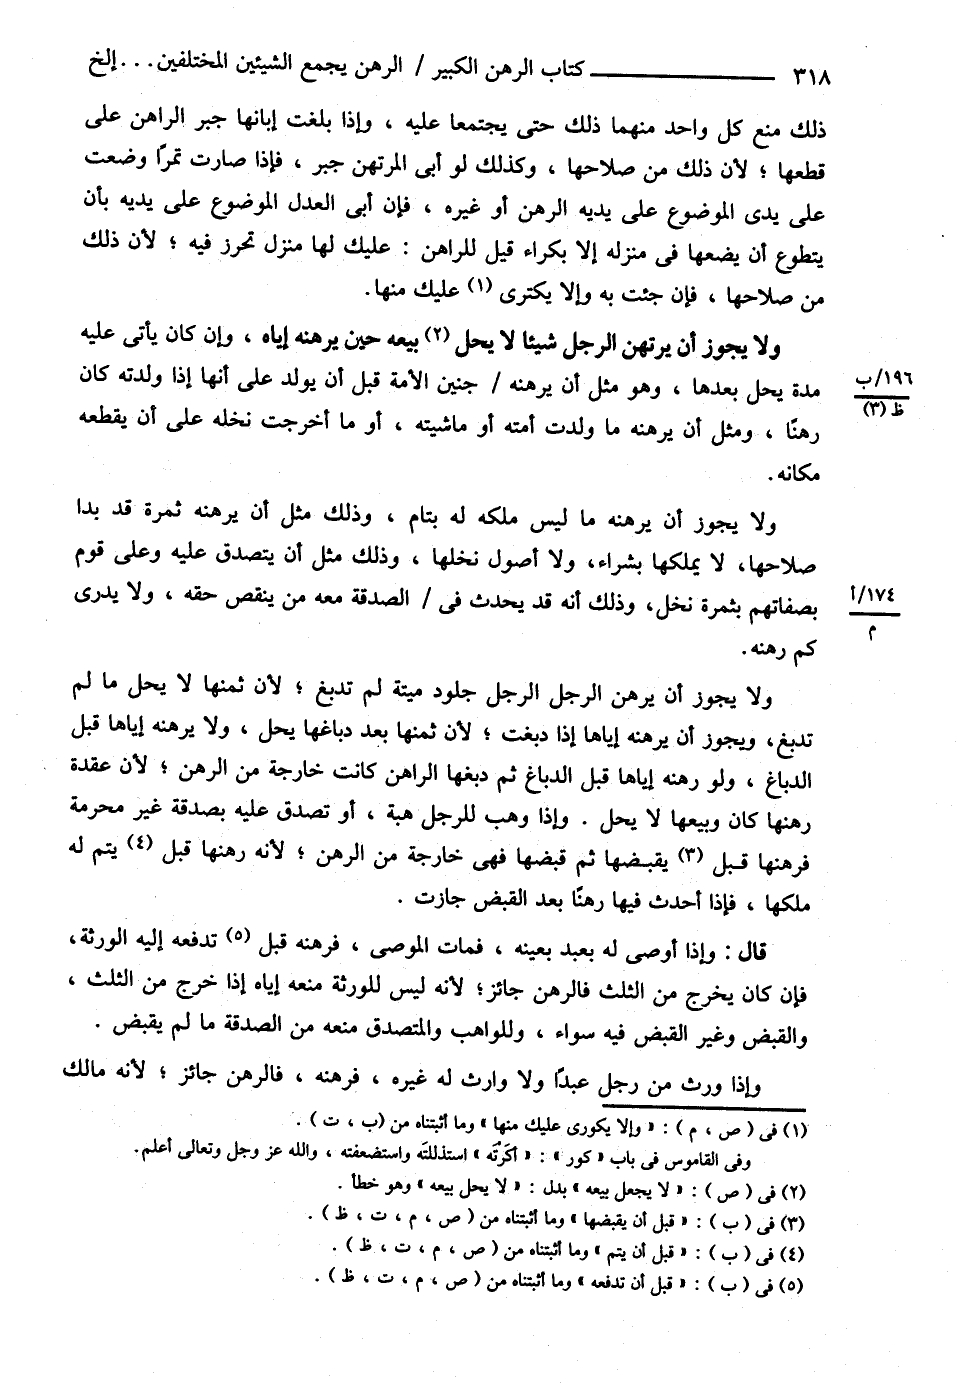 ٣١٨ ــــــــــــــــ كتاب الرهن الكبير / الرهن يجمع الشيئين المختلفين . . . إلخ
ذلك منع كل واحد منهما ذلك حتى يجتمعا عليه ، وإذا بلغت إبانها جبر الراهن على
قطعها ؛ لأن ذلك من صلاحها ، وكذلك لو أبى المرتهن جبر ، فإذا صارت تمرًا وضعت
على يدى الموضوع على يديه الرهن أو غيره ، فإن أبى العدل الموضوع على يديه بأن
يتطوع أن يضعها فى منزله إلا بكراء قيل للراهن : عليك لها منزل تحرز فيه ؛ لأن ذلك
من صلاحها ، فإن جئت به وإلا يكترى (١) عليك منها.
ولا يجوز أن يرتهن الرجل شيئا لا يحل (٢) بيعه حين يرهنه إياه ، وإن كان يأتى عليه
مدة يحل بعدها ، وهو مثل أن يرهنه / جنين الأمة قبل أن يولد على أنها إذا ولدته كان
١٩٦/ب
رهنًا ، ومثل أن يرهنه ما ولدت أمته أو ماشيته ، أو ما أخرجت نخله على أن يقطعه
ظ (٣)
مكانه.
ولا يجوز أن يرهنه ما ليس ملكه له بتام ، وذلك مثل أن يرهنه ثمرة قد بدا
صلاحها، لا يملكها بشراء، ولا أصول نخلها ، وذلك مثل أن يتصدق عليه وعلى قوم
بصفاتهم بثمرة نخل، وذلك أنه قد يحدث فى / الصدقة معه من ينقص حقه ، ولا يدرى
١٧٤/أ
م
كم رهنه.
ولا يجوز أن يرهن الرجل الرجل جلود ميتة لم تدبغ ؛ لأن ثمنها لا يحل ما لم
تدبغ، ويجوز أن يرهنه إياها إذا دبغت ؛ لأن ثمنها بعد دباغها يحل ، ولا يرهنه إياها قبل
الدباغ ، ولو رهنه إياها قبل الدباغ ثم دبغها الراهن كانت خارجة من الرهن ؛ لأن عقدة
رهنها كان وبيعها لا يحل . وإذا وهب للرجل هبة ، أو تصدق عليه بصدقة غير محرمة
فرهنها قبل (٣) يقبضها ثم قبضها فهى خارجة من الرهن ؛ لأنه رهنها قبل (٤) يتم له
ملكها ، فإذا أحدث فيها رهنًا بعد القبض جازت .
قال : وإذا أوصى له بعبد بعينه ، فمات الموصى ، فرهنه قبل (٥) تدفعه إليه الورثة،
فإن كان يخرج من الثلث فالرهن جائز؛ لأنه ليس للورثة منعه إياه إذا خرج من الثلث ،
والقبض وغير القبض فيه سواء ، وللواهب والمتصدق منعه من الصدقة ما لم يقبض .
وإذا ورث من رجل عبدًا ولا وارث له غيره ، فرهنه ، فالرهن جائز ؛ لأنه مالك
(١) فى ( ص ، م ) : « وإلا يكورى عليك منها » وما أثبتناه من (ب ، ت ) .
وفى القاموس فى باب « كور » : « أكَرْتَه » استذللتَه واستضعفته ، والله عز وجل وتعالى أعلم.
(٢) فى ( ص ) : « لا يجعل بيعه » بدل : « لا يحل بيعه » وهو خطأ .
(٣) فى ( ب ) : « قبل أن يقبضها » وما أثبتناه من ( ص ، م ، ت ، ظ ) .
(٤) فى ( ب ) : « قبل أن يتم » وما أثبتناه من ( ص ، م ، ت ، ظ ) .
(٥) فى ( ب ) : « قبل أن تدفعه » وما أثبتناه من ( ص ، م ، ت ، ظ ) .